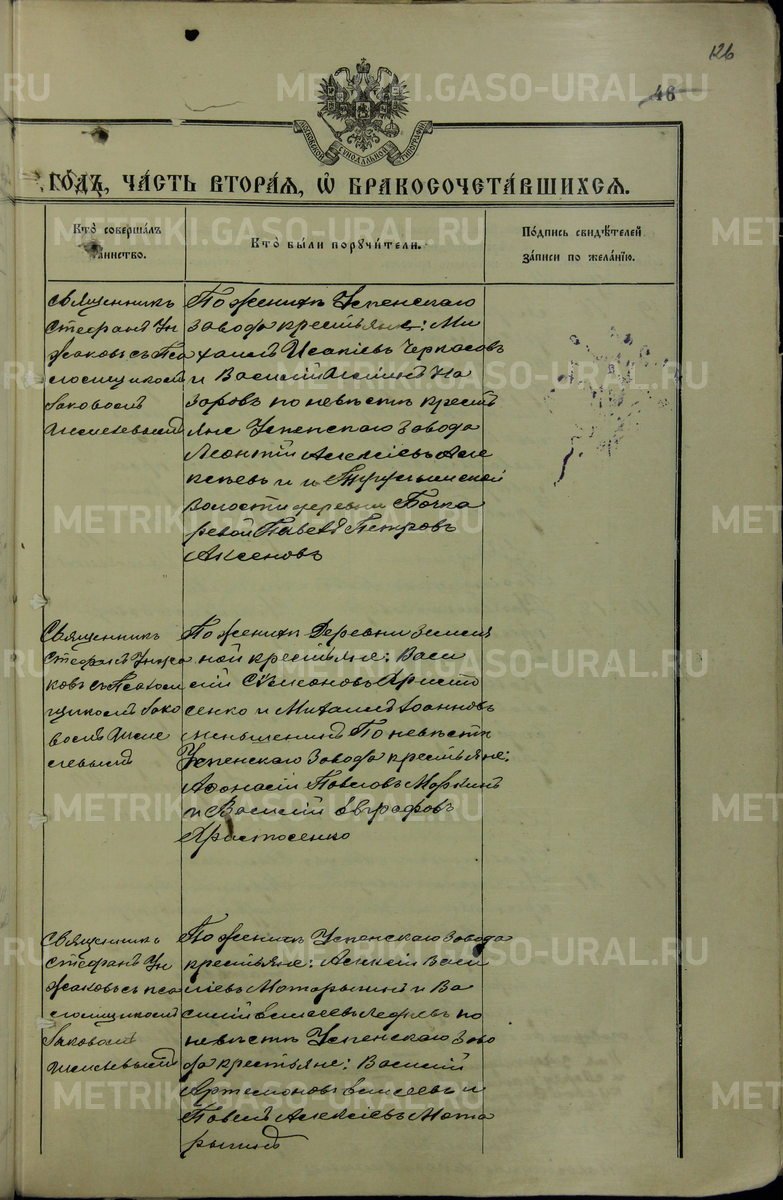 126
46
МОСКОВСКОЙ СѴНОДАЛЬНОЙ ТИПОГРАФІИ
ГО́ДЪ, ЧА́СТЬ ВТОРА́Я, Ѡ҆ БРАКОСОЧЕТА́ВШИХСЯ.
Кто̀ соверша́лъ
таинство.
Кто̀ бы́ли порꙋчи́тели.
По́дпись свидѣ́телей
за́писи по жела́нїю.
Священникъ
Стефанъ Ун
жаковъ съ Пса
ломщикомъ
Яковомъ
По женихѣ Успенскаго
завода крестьяне: Ми
хаилъ Исакіевъ Черкасовъ
и Василій На
заровъ по невѣстѣ кресть
яне Успенскаго завода
Леонтій Алексіевъ Але
ксѣевъ и
волости деревни Бочка
ревой Павелъ Петровъ
Аксеновъ
Священникъ
Стефанъ Унжа
ковъ съ Псалом
щикомъ Яко
вомъ
По женихѣ Деревни Земля
ной крестьяне: Васи
лій Симоновъ Христо
сенко и Михаилъ Іоанновъ
По невѣстѣ
Успенскаго завода крестьяне:
Афонасій Павловъ Моркинъ
и Василій Евграфовъ
Христосенко
Священникъ
Стефанъ Ун
жаковъ съ пса
ломщикомъ
Яковомъ
По женихѣ Успенскаго завода
крестьяне: Алексій Васи
ліевъ Мотарыгинъ и Ва
силій по
невѣстѣ Успенскаго заво
да крестьяне: Василій
Артемоновъ Елисеевъ и
Павелъ Алексіевъ Мота
рыгинъ
METRIKI.GASO-URAL.RU